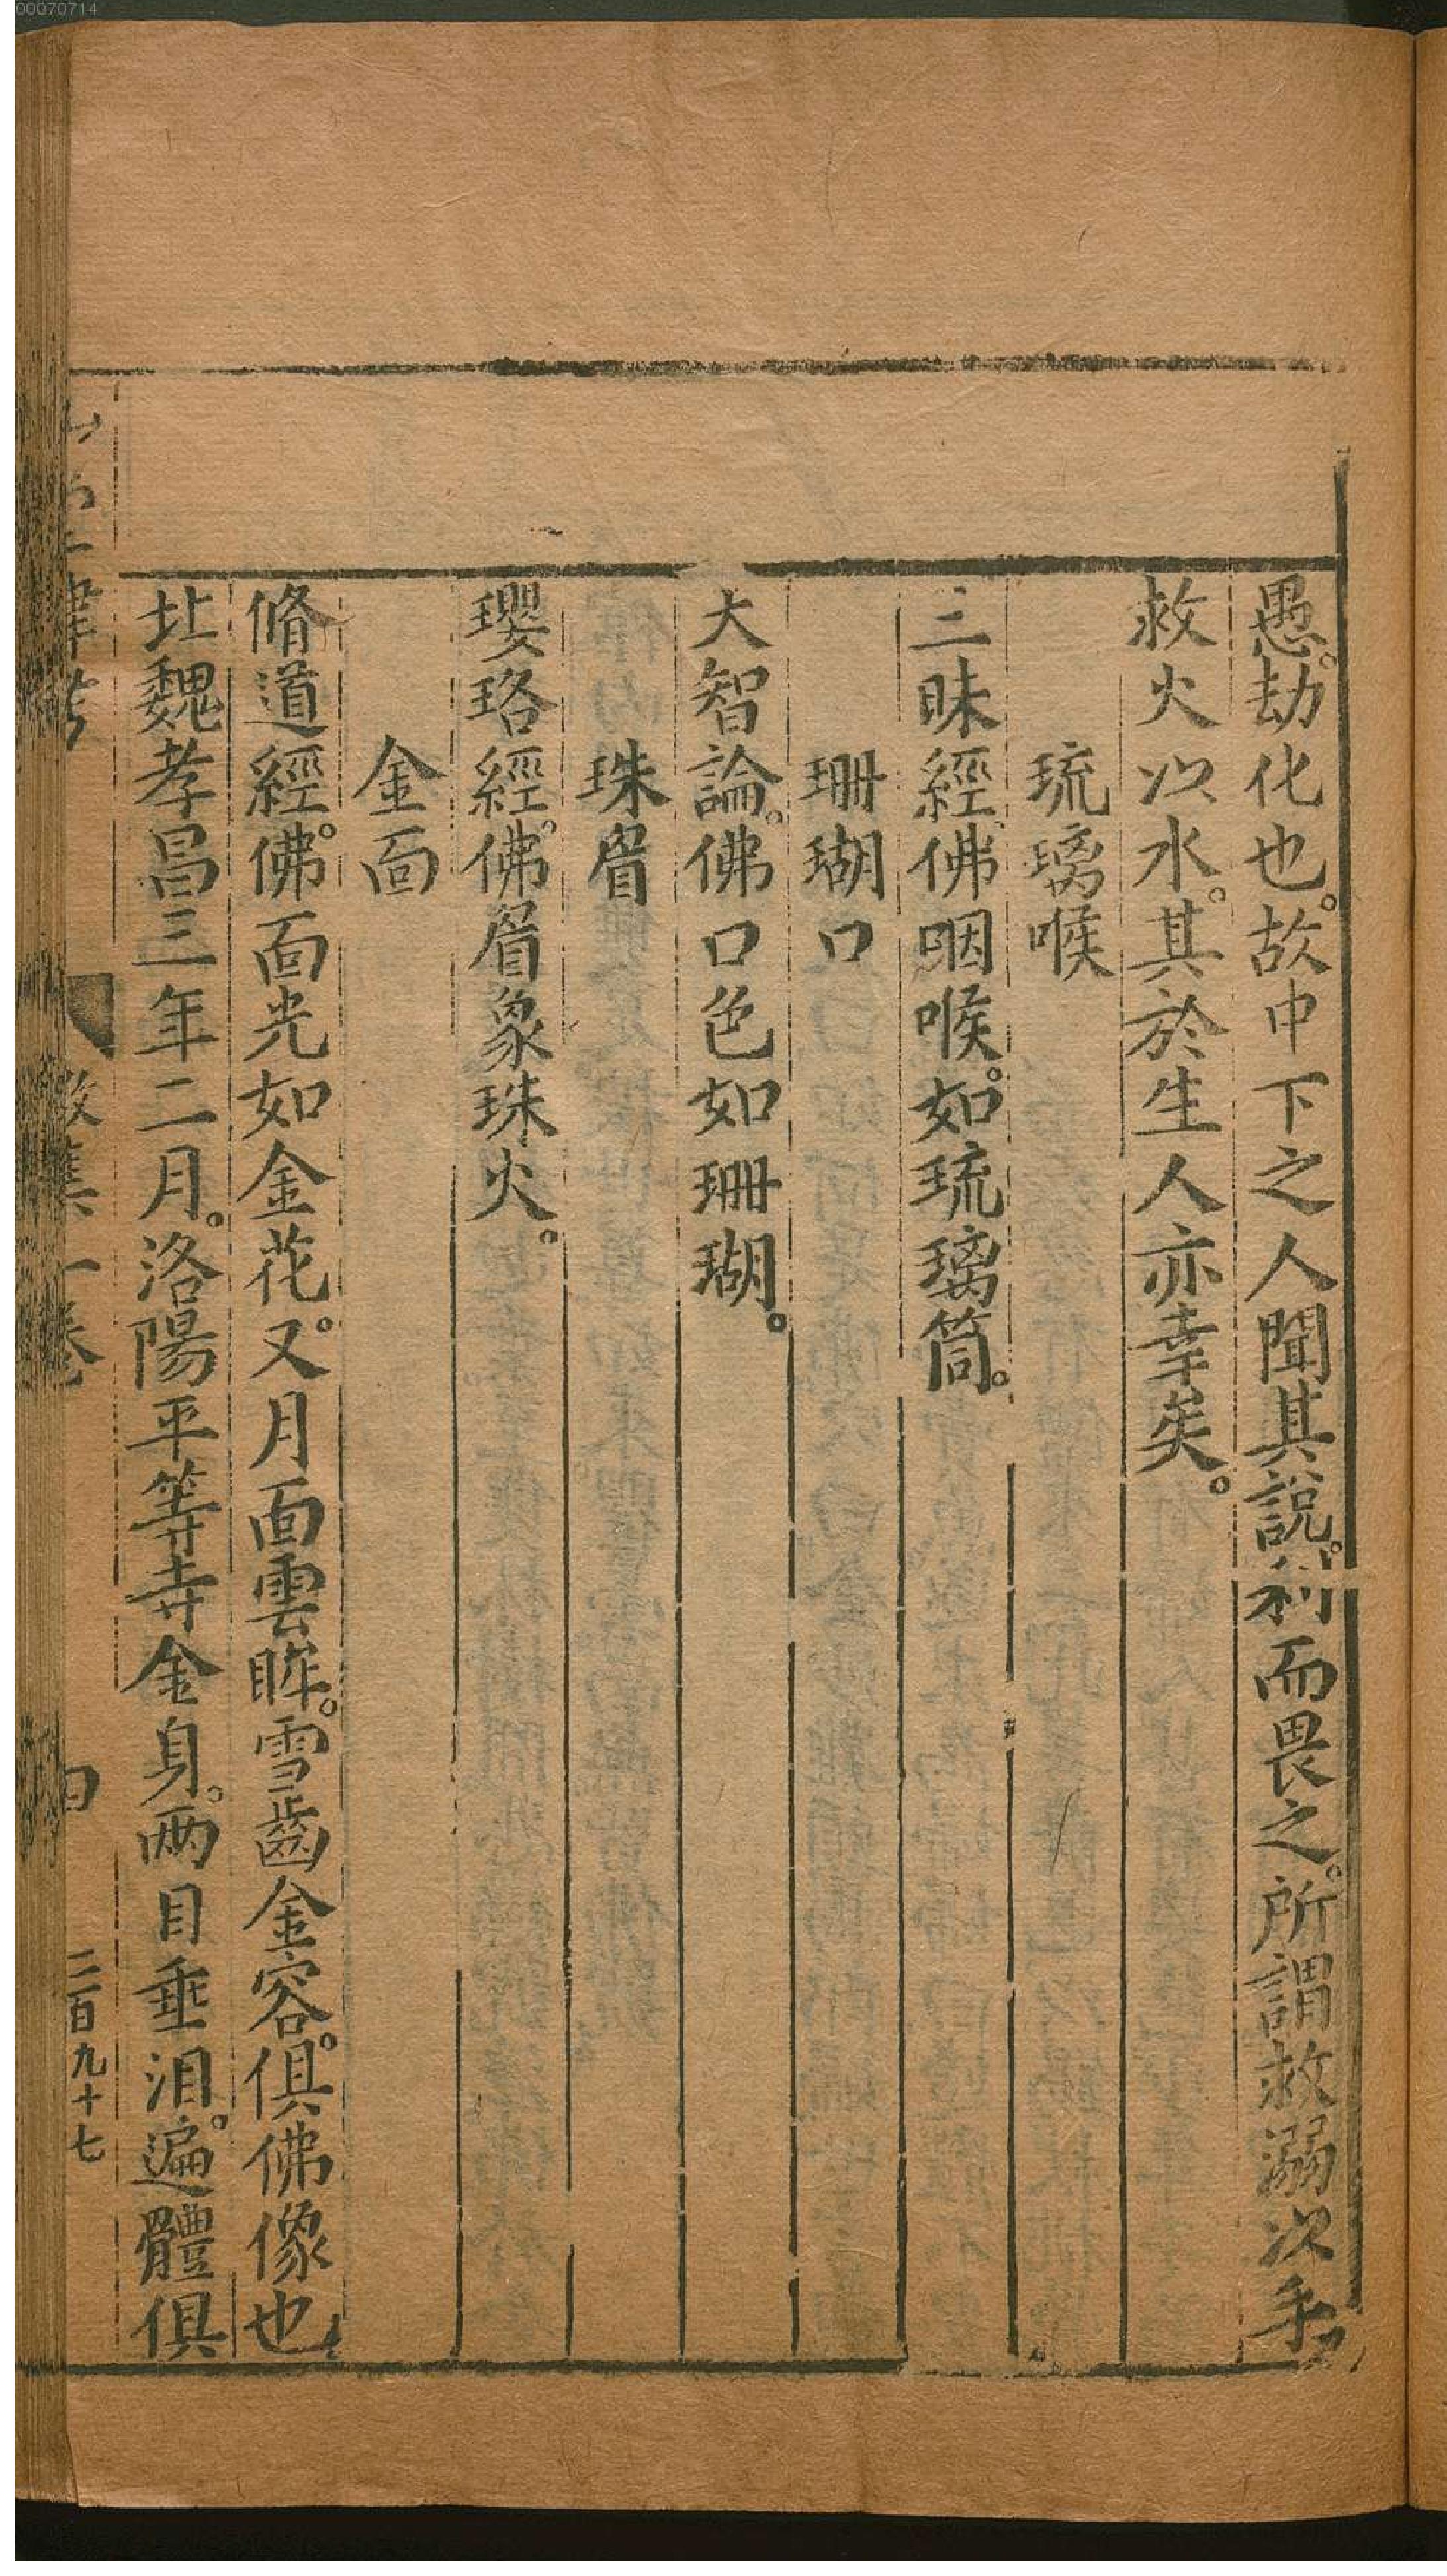 00070714
愚。劫化也。故中下之人聞其說。利而畏之。所謂救溺次手
救火以水。其於生人亦幸矣。
琉璃喉
三昧經。佛咽喉。如琉璃筒。
珊瑚口
大智論。佛口色如珊瑚。
珠眉
瓔珞經。佛眉象珠火。
金面
脩道經。佛面光如金花。又。月面雲眸。雪齒金容。俱佛像也
北魏孝昌三年二月。洛陽平等寺金身。兩目垂淚。遍體俱
一卷
二百九十七